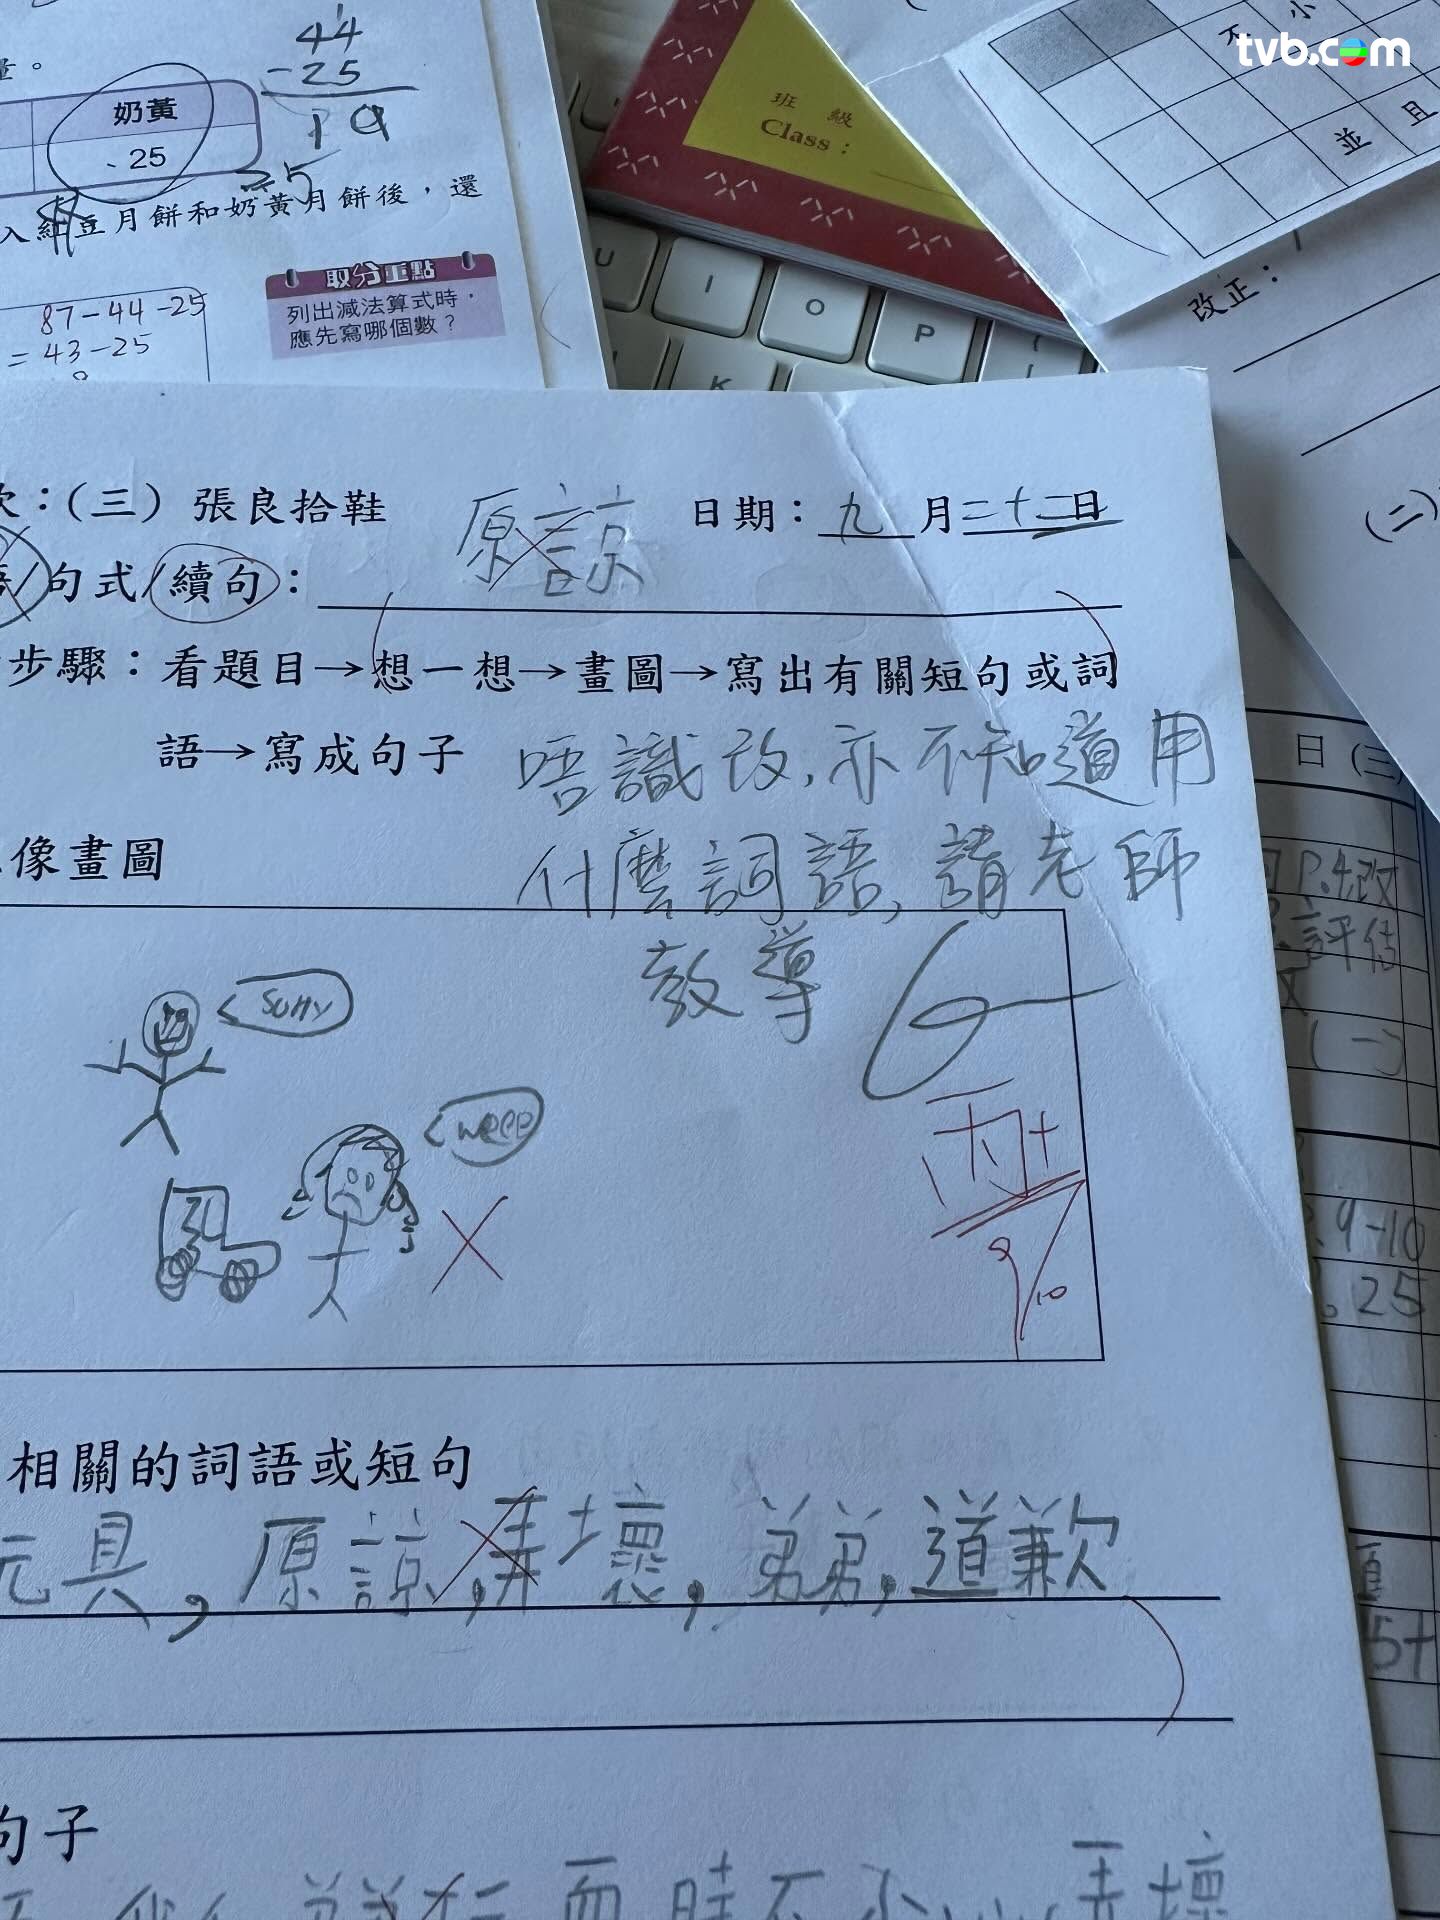 tvb.com
44
-25
19
量。
奶黃
25
25
入紅豆月餅和奶黃月餅後，還
取分重點
列出減法算式時，
應先寫哪個數？
87-44-25
=43-25
班級
Class：
U
I
O
P
K
不小
並且
改正：
(二)
次：(三) 張良拾鞋
日期：九月二十二日
原諒
/句式/續句：
步驟：看題目→想一想→畫圖→寫出有關短句或詞
語→寫成句子
唔識改，亦不知道用
什麼詞語，請老師
教導
像畫圖
sorry
weee
9/10
相關的詞語或短句
玩具，原諒，弄壞，弟弟，道歉
句子
時不小心弄壞
日(三)
P.4改
評估
(一)
9-10
25